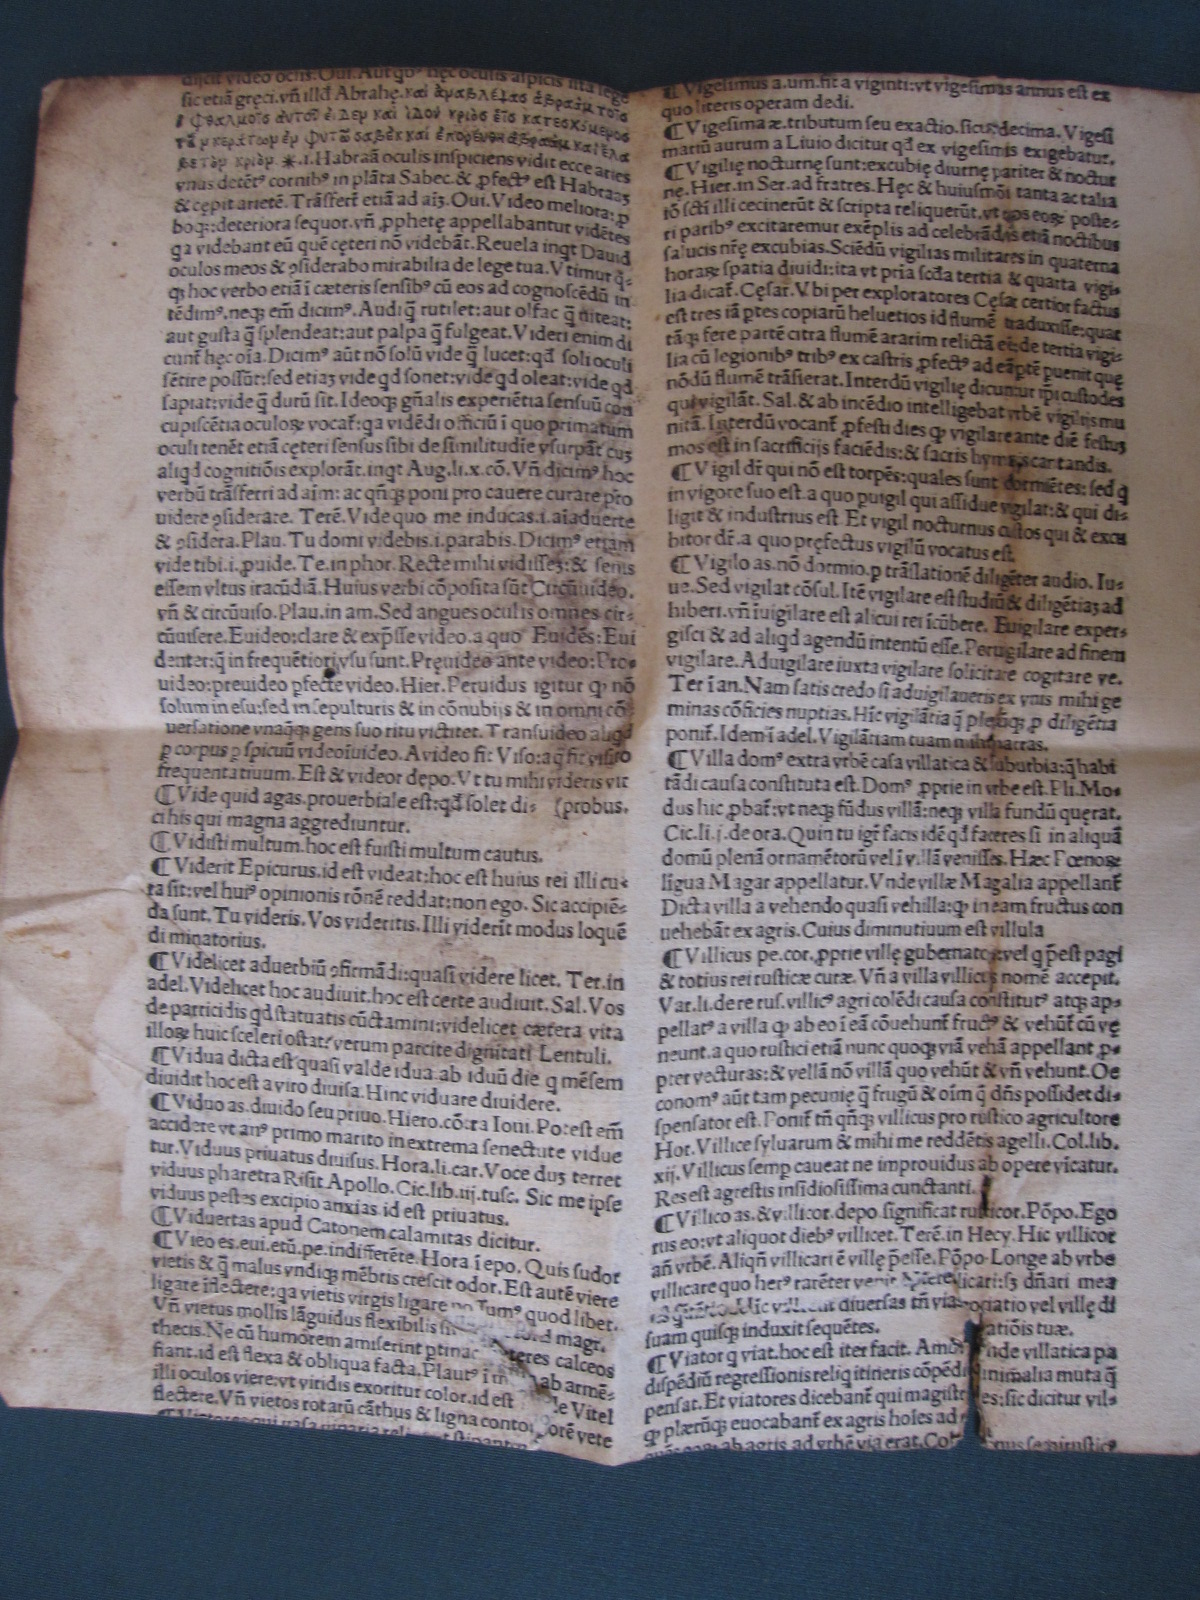 sic etiā gręci. vñ illđ Abrahę. καὶ ἀναβλέψας ἀβραὰμ τοῖς
ὀφθαλμοῖς αὐτοῦ εἶδεν καὶ ἰδοὺ κριὸς εἷς κατεχόμενος
βετὸν κριὸν. .i. Habraā oculis inspiciens vidit ecce aries
vnus detētꝰ cornibꝰ in plāta Sabec. & ꝓfectꝰ est Habraaꝫ
& cępit arietē. Trāsferť etiā ad aiꝫ. Oui. Video meliora: ꝓ
boqꝫ: deteriora sequor. vñ ꝓphetę appellabantur vidētes
qa videbant eū quē cęteri nō videbāt. Reuela inqt Dauid
oculos meos & ↄsiderabo mirabilia de lege tua. Vtimur q̄-
qꝫ hoc verbo etiā ī cæteris sensibꝰ cū eos ad cognoscēdū in
tēdimꝰ. neqꝫ em̄ dicimꝰ. Audi q̄ rutilet: aut olfac q̄ niteat:
aut gusta q̄ splendeat: aut palpa q̄ fulgeat. Videri enim di
cunť hęc oīa. Dicimꝰ aūt nō solū vide q̄ lucet: qđ soli oculi
sētire possūt: sed etiaꝫ vide qđ sonet: vide qđ oleat: vide qđ
sapiat: vide q̄ durū sit. Ideoqꝫ gn̄alis experiētia sensuū con
cupiscētia oculoꝝ vocať: qa vidēdi officiū ī quo primatum
oculi tenēt etiā cęteri sensus sibi de similitudīe vsurpāt cuꝫ
aliqđ cognitiōis explorāt. inqt Aug. li. x. cō. Vñ dicimꝰ hoc
verbū trāsferri ad aīm: ac qn̄qꝫ poni pro cauere curare pro
uidere ↄsiderare. Terē. Vide quo me inducas. i. aīaduerte
& ↄsidera. Plau. Tu domi videbis. i. parabis. Dicimꝰ etiam
vide tibi. i. ꝓuide. Te. in phor. Recte mihi vidissēꝫ: & senis
essem vltus iracūdiā. Huius verbi cōposita sūt Circūuideo.
vñ & circūuiso. Plau. in am. Sed angues oculis omnes cir-
cūuisere. Euideo: clare & exp̄sse video. a quo Euidēs: Eui
denter: q̄ in frequētiori vsu sunt. Pręuideo ante video: Pro-
uideo: preuideo ꝑfecte video. Hier. Peruidus igitur ꝙ nō
solum in esu: sed in sepulturis & in cōnubijs & in omni cō-
uersatione vnaqꝫ gens suo ritu victitet. Transuideo aliqđ
ꝑ corpus ꝑspicuū video: uideo. A video fit Viso: a q̄ fit visito
frequentatiuum. Est & videor depo. Vt tu mihi videris vir
¶ Vide quid agas. prouerbiale est: qđ solet di- (probus.
ci his qui magna aggrediuntur.
¶ Vidisti multum. hoc est fuisti multum cautus.
¶ Viderit Epicurus. id est videat: hoc est huius rei illi cu-
ra sit: vel huiꝰ opinionis rōnē reddat: non ego. Sic accipiē-
da sunt. Tu videris. Vos videritis. Illi viderīt modus loquē
di minatorius.
¶ Videlicet aduerbiū ↄfirmādi: quasi videre licet. Ter. in
adel. Videlicet hoc audiuit. hoc est certe audiuit. Sal. Vos
de parricidis qđ statuatis cūctamini: videlicet cætera vita
illoꝝ huic sceleri obstat: verum parcite dignitati Lentuli.
¶ Vidua dicta est quasi valde idua ab iduū die q mēsem
diuidit hoc est a viro diuisa. Hinc viduare diuidere.
¶ Viduo as. diuido seu priuo. Hiero. cōtra Ioui. Potest em̄
accidere vt anꝰ primo marito in extrema senectute vidue
tur. Viduus priuatus diuisus. Hora. li. car. Voce duꝫ terret
viduus pharetra Risit Apollo. Cic. lib. iij. tusc. Sic me ipse
viduus pestes excipio anxias. id est priuatus.
¶ Viduertas apud Catonem calamitas dicitur.
¶ Vieo es. eui. etū. pe. indifferēte. Hora ī epo. Quis sudor
vietis & q̄ malus vndiqꝫ mēbris crescit odor. Est autē viere
ligare īflectere: qa vietis virgis ligare quod libet.
Vñ vietus mollis lāguidus flexibilis magr.
thecis. Ne cū humorem amiserint calceos
fiant. id est flexa & obliqua facta. Plautꝰ ab armē-
illi oculos viere: vt viridis exoritur color. id est Vitel
flectere. Vñ vietos rotarū cāthus & ligna vete
¶ Vigesimus a. um. fit a viginti: vt vigesimus annus est ex
quo literis operam dedi.
¶ Vigesima æ. tributum seu exactio. sicut decima. Vigesi
mariū aurum a Liuio dicitur qđ ex vigesimis exigebatur.
¶ Vigilię nocturnę sunt: excubię diurnę pariter & noctur
nę. Hier. in Ser. ad fratres. Hęc & huiusmōi tanta ac talia
iō scti illi cecinerūt & scripta reliquerūt. vt nos eoꝝ poste-
ri paribꝰ excitaremur exēplis ad celebrādas etiā noctibus
salucis nr̄ę excubias. Sciēdū vigilias militares in quaterna
horaꝝ spatia diuidi: ita vt pria scđa tertia & quarta vigi-
lia dicať. Cęsar. Vbi per exploratores Cęsar certior factus
est tres iā ꝑtes copiarū heluetios id flumē traduxisse: quar
tāqꝫ fere partē citra flumē ararim relictā eē: de tertia vigi-
lia cū legionibꝰ tribꝰ ex castris ꝓfectꝰ ad eā ꝑtē ꝑuenit quę
nōdū flumē trāsierat. Interdū vigilię dicuntur ip̄i custodes
qui vigilāt. Sal. & ab incēdio intelligebat vrbē vigilijs mu
nitā. Interdū vocanť ꝓfesti dies ꝙ vigilare ante diē festuꝫ
mos est in sacrificijs faciēdis: & sacris hymnis cantandis.
¶ Vigil dr̄ qui nō est torpēs: quales sunt dormiētes: sed q̄
in vigore suo est. a quo puigil qui assidue vigilat: & qui di-
ligit & industrius est. Et vigil nocturnus custos qui & excu
bitor dr̄. a quo pręfectus vigilū vocatus est.
¶ Vigilo as. nō dormio. ꝑ trāslationē diligēter audio. Iu-
ue. Sed vigilat cōsul. Itē vigilare est studiū & diligētiaꝫ ad
hiberi. vñ īuigilare est alicui rei īcūbere. Euigilare exper-
gisci & ad aliqđ agendū intentū esse. Peruigilare ad finem
vigilare. Aduigilare iuxta vigilare solicitare cogitare ve.
Ter ī an. Nam satis credo si aduigilaueris ex vnis mihi ge
minas cōficies nuptias. Hīc vigilātia q̄ plerūqꝫ ꝑ diligētia
poniť. Idem ī adel. Vigilātiam tuam mihi narras.
¶ Villa domꝰ extra vrbē casa villatica & suburbia: q̄ habi
tādi causa constituta est. Domꝰ ꝓprie in vrbe est. Pli. Mo-
dus hic ꝓbať: vt neqꝫ fūdus villā: neqꝫ villa fundū quęrat.
Cic. li. j. de ora. Quin tu igť facis idē qđ faceres si in aliquā
domū plenā ornamētorū vel ī villā venisses. Hæc Fœnoꝝ
līgua Magar appellatur. Vnde villæ Magalia appellanť
Dicta villa a vehendo quasi vehilla: ꝙ in eam fructus con
uehebāť ex agris. Cuius diminutiuum est villula
¶ Villicus pe. cor. ꝓprie villę gubernator: vel q p̄est pagi
& totius rei rusticæ curæ. Vñ a villa villicus nomē accepit.
Var. li. de re rus. villicꝰ agri colēdi causa constitutꝰ atqꝫ ap-
pellatꝰ a villa ꝙ ab eo ī eā cōuehunť fructꝰ & vehūť cū vę
neunt. a quo rustici etiā nunc quoqꝫ viā vehā appellant ꝓ-
pter vecturas: & vellā nō villā quo vehūt & vñ vehunt. Oe
conomꝰ aūt tam pecunię q̄ frugū & oīm q̄ dn̄s possidet di-
spensator est. Poniť tn̄ qn̄qꝫ villicus pro rustico agricultore
Hor. Villice syluarum & mihi me reddētis agelli. Col. lib.
xij. Villicus semꝑ caueat ne improuidus ab opere vicatur.
Res est agrestis insidiosissima cunctanti.
¶ Villico as. & villicor. depo. significat rusticor. Pōpo. Ego
rus eo: vt aliquot diebꝰ villicet. Terē. in Hecy. Hic villicor
añ vrbē. Aliqn̄ villicari ē villę p̄esse. Pōpo. Longe ab vrbe
villicare quo herꝰ rarēter venit licari: sꝫ dn̄ari mea
diuersas tn̄ vel villę di
suam quisqꝫ induxit sequētes. atiōis tuæ.
¶ Viator q viat. hoc est iter facit. nde villatica pa
dispēdiū regressionis reliq itineris cōpēdi animalia muta q̄
pensat. Et viatores dicebanť qui magistr es: sic dicitur vil-
ꝙ plærūqꝫ euocabanť ex agris hoīes ad
ab agris ad vrbē via erat.